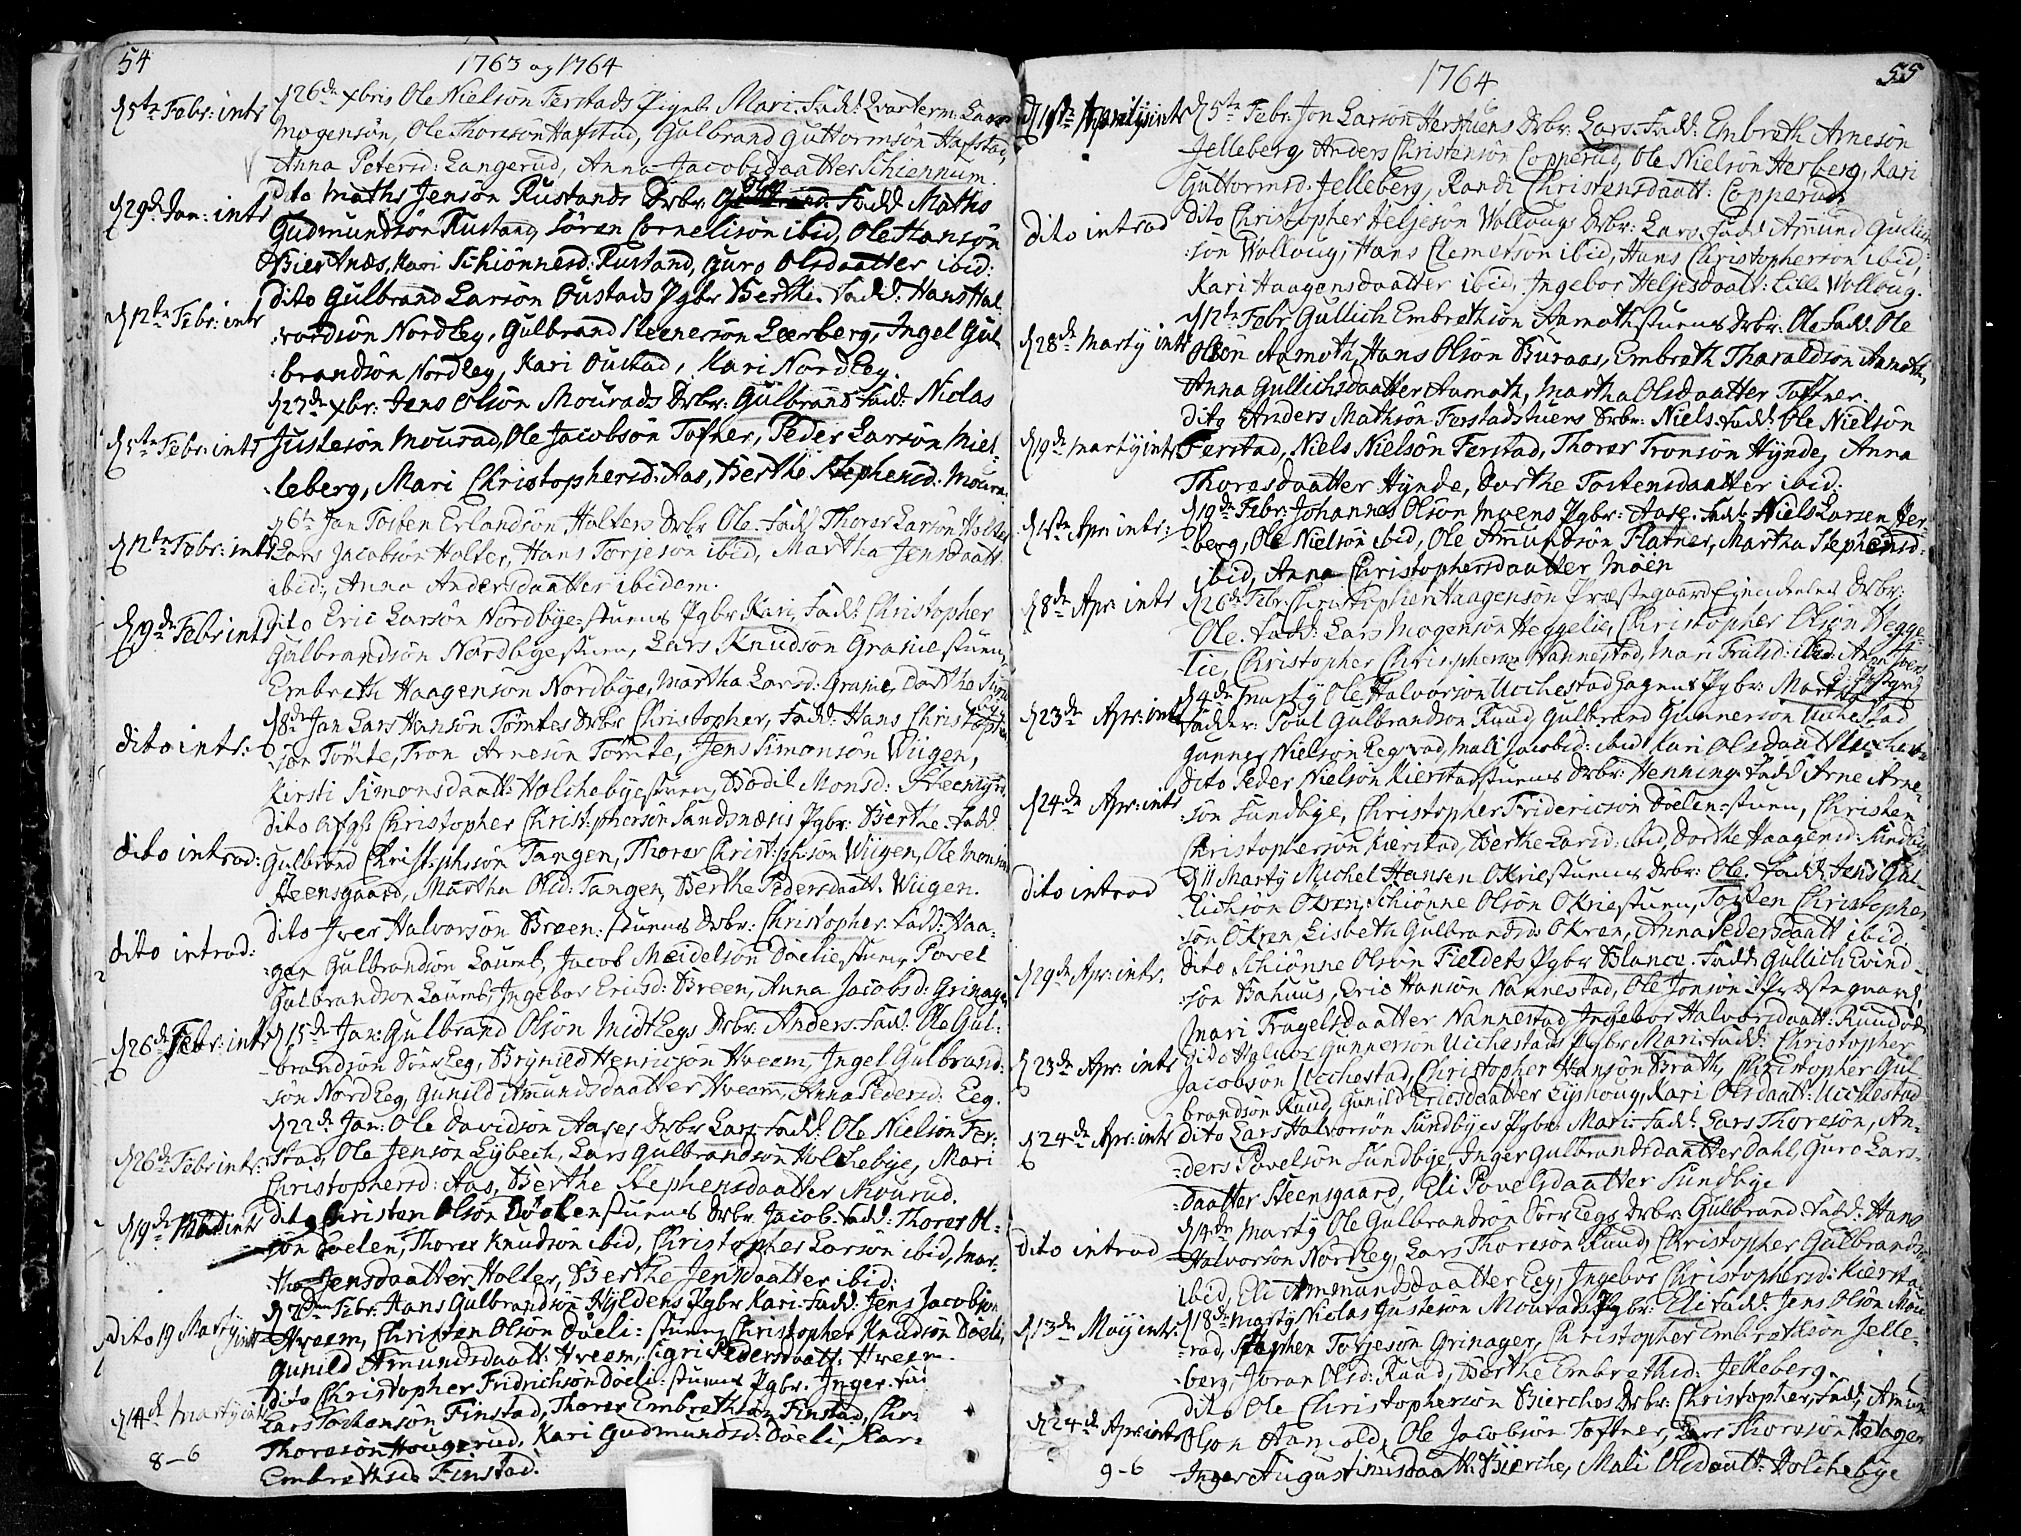 54
1763 og 1764
d 5te Febr: intr
d 26de xbris Ole Nielsön Ferstads Pigeb: Mari. Fadd: Qvarterm: Lars
Mogensön, Ole Thoresön Hafstad, Gulbrand Guttormsön Hafstad,
Anna Petersd: Langerud, Anna Jacobsdaatter Schiennum.
d 29de Jan: intr
dito Maths Jensön Rustands Drbr: Ole Fadd: Maths
Gudmundsön Rustand, Sören Cornelisön ibid, Ole Hansön
Biertnæs, Kari Schiönnesd: Rustand, Guro Olsdaatter ibid:
d 12te Febr: intr
dito Gulbrand Larsön Oustads Pgbr Berthe. Fadd: Hans Hal-
vordsön Nordbey, Gulbrand Steenersön Leerberg, Ingel Gul-
brandsön Nordbey, Kari Oustad, Kari Nordbey.
d 27de xbr: Jens Olsön Mourads Drbr: Gulbrand Fadd: Niclas
d 5te Febr: intr
Justesön Mourad, Ole Jacobsön Tofner, Peder Larsön Miel-
leberg, Mari Christophersd: Aas, Berthe Stephensd: Mouru.
d 6te Jan Tosten Erlandsön Holters Drbr Ole. Fadd Thorer Larsön Holter
d 12te Febr: intr
Lars Jacobsön Holter, Hans Torjesön ibid, Martha Jensdaatt:
ibid:, Anna Andersdaatter ibidem.
d 19de Febr intr
dito Eric Larsön Nordbye=stuens Pgbr Kari, Fadd: Christopher
Gulbrandsön Nordbyestuen, Lars Knudsön Grasiestuen,
Embreth Haagensön Nordbye, Martha Larsd: Grasie, Dorthe
dito intr:
d 8de Jan Lars Hansön Tömtes Drbr Christopher, Fadd: Hans Christopher
sön Tömte, Tron Arnesön Tömte, Jens Simonsön Wiigen,
Kirsti Simonsdaatt: Holchebyestuen, Bodil Monsd:
dito Christopher Christophersön Sandsnæsis Pgbr: Berthe. Fadd:
dito introd:
Gulbrand Christophsön Tangen, Thorer Christophsön Wiigen, Ole Monsen
Steensgaard, Martha Olsd: Tangen, Berthe Pedersdaatt. Wiigen.
dito introd:
dito Iver Halvorsön Breen: stuens Drbr: Christopher. Fadd: Haa-
gen Gulbrandsön Laumb, Jacob Meidelsön Doelie stuen, Povel
Gulbrandsön Laumb, Ingebor Ericsd: Breen, Anna Jacobsd: Grinager
d 26de Febr: intr
d 15de Jan: Gulbrand Olsön Midt Eegs Drbr: Anders. Fadd: Ole Gul-
brandsön Söer Eeg, Brynild Henricsön Hveem, Ingel Gulbrand-
sön Nord Eeg, Gunild Amundsdaatter Hveem, Anna Pedersd: Eeg.
d 22de Jan: Ole Davidsön Aases Drbr Lars. Fadd: Ole Nielsön Fer-
d 26de Febr intr:
stad, Ole Jensön Lybech, Lars Gulbrandsön Holchebye, Mari
Christophersd: Aas, Berthe Stephensdaatter Mourud.
d 19de intr
dito Christen Olsön Döelenstuens Drbr Jacob. Fadd: Thorer Ol-
sön Doelen, Thorer Knudsön ibid, Christopher Larsön ibid, Mar-
tha Jensdaatter Holter, Berthe Jensdaatter ibid:
Dito 19 Martij intr
Febr: Hans Gulbrandsön Hyldens Pgbr Kari. Fadd: Jens Jacobsön
Hveem, Christen Olsön Döeli: stuen, Christopher Knudsön Döeli,
Gunild Amundsdaatt: Hveem, Sigri Pedersdaatt: Hveem.
dito Christopher Fridrichsön Doeli: stuens Pgbr. Inger.
d 14de Martij intr
Lars Tostensön Finstad, Thorer Embrethsön Finstad, Chr:
Thoresön Hougerud, Kari Gudmundsd: Doeli, Kar-
8-6
Embrethsd Finstad.
1764
55
d 1ste Aprilis intr
d 5te Febr: Jon Larsön Herstuens Drbr: Lars. Fadd: Embreth Arnesön
Jelleberg, Anders Christensön Copperud, Ole Nielsön Herberg, Kari
Guttormsd. Jelleberg, Randi Christensdaatt: Copperud.
dito introd
dito Christopher Heljesön Wollougs Drbr: Lars. Fadd Amund Gullich-
sön Wolloug, Hans Clemetsön ibid, Hans Christophersön ibid,
Kari Haagensdaatter ibid, Ingebor Heljesdaatt: Lille Wolloug.
d 12te Febr Gullich Embrethsön Aamothstuens Drbr: Ole Fadd: Ole
d 28de Martij intr
Olsön Aamoth, Hans Olsön Buraas, Embreth Tharaldsön Aamoth,
Anna Gullichsdaatter Aamoth, Martha Olsdaatter Toftner.
dito Anders Mathsön Ferstadstuens Drbr: Niels. Fadd: Ole Nielsön
d 19de Martij intr
Ferstad, Niels Nielsön Ferstad, Thorer Tronsön Hynde, Anna
Thoresdaatter Hynde, Dorthe Tostensdaatter ibid:
d 1ste Apr: intr:
d 19de Febr: Johannes Olsön Moens Pgbr: Aase. Fadd: Niels Larsen Her-
berg, Ole Nielsön ibid, Ole Amundsön Flatner, Martha Stephensd:
ibid, Anna Christophersdaatter Möen
d 8de Apr: intr
d 26de Febr: Christopher Haagensön Præstegaard Ejendeles Drbr:
Ole. Fadd: Lars Mogensön Heggelie, Christopher Olsön Hegge-
lie, Christopher Christophersön Nannestad, Mari Truelsd: ibid: Anne
d 4de Martij Ole Halvorsön Ucchestad hagens Pgbr: Martha
d 23de Apr: intr
Fadder: Poul Gulbrandsön Ruud, Gulbrand Gunnersön Ucchestad
Gunner Nielsön Eegstad, Mali Jacobsd: ibid Kari Olsdaatt Ucchestad
dito Peder Nielsön Kierstadstuens Drbr: Henning. Fadd Arne Arne-
d 24de Apr: intr
sön Sundbye, Christopher Fridericsön Döelen=stuen, Christen
Christophersön Kierstad, Berthe Larsd: ibid, Dorthe Haagensd: Sundbye
dito introd
d 11 Martij Michel Hansen Okriestuens Drbr: Ole. Fadd Jens Gul-
lichsön Okren, Schiönne Olsön Okriestuen, Tosten Christopher-
sön Okren, Lisbeth Gulbrandsd: Okren, Anna Pedersdaatt ibid.
d 29de Apr: intr.
dito Schiönne Olsön Fieldets Pgbr Blance. Fadd: Gullich Evind-
sön Bahuus, Eric Hansön Nannestad, Ole Jonsön Præstegaard,
Mari Tragelsdaatter Nannestad, Ingebor Halvorsdaatt: Ruudöde
d 23de Apr: intr
dito Halvor Gunnersön Ucchestads Pgbr Mari: Fadd: Christopher
Jacobsön Ucchestad, Christopher Hansön Brath, Christopher Gul-
brandsön Ruud, Gunild Ericsdaatter Lyshoug, Kari Olsdaatt: Ucchestad
d 24de Apr: intr
dito Lars Halvorsön Sundbyes Pgbr Mari: Fadd: Lars Thoresön, An-
ders Povelsön Sundbye, Inger Gulbrandsdaatter Dahl, Guro Lars-
daatter Steensgaard, Eli Povelsdaatter Sundbye
dito introd
d 14de Martij Ole Gulbrandsön Söer Eegs Drbr: Gulbrand Fadd: Hans
Halvorsön Nord Eeg, Lars Thoresön Ruud, Christopher Gulbrandsön
ibid, Eli Amundsdaatter Eeg, Ingebor Christophersd: Kierstad
d 13de Maij intr:
d 18de Martij Niclas Gustesön Mourads Pgbr: Eli Fadd: Jens Olsön Mou-
rad, Stephen Torjesön Grinager, Christopher Embrethsön Jelle-
berg, Joran Olsd: Ruud, Berthe Embrethsd: Jelleberg.
dito Ole Christophersön Bierches Drbr: Christopher, Fadd: Amund
d 24de Apr: intr
Olsön Aamold, Ole Jacobsön Toftner, Lars Thoresön Hexager
9-6
Inger Augustinusdaatt: Bierche, Mali Olsdaatt: Holchebye